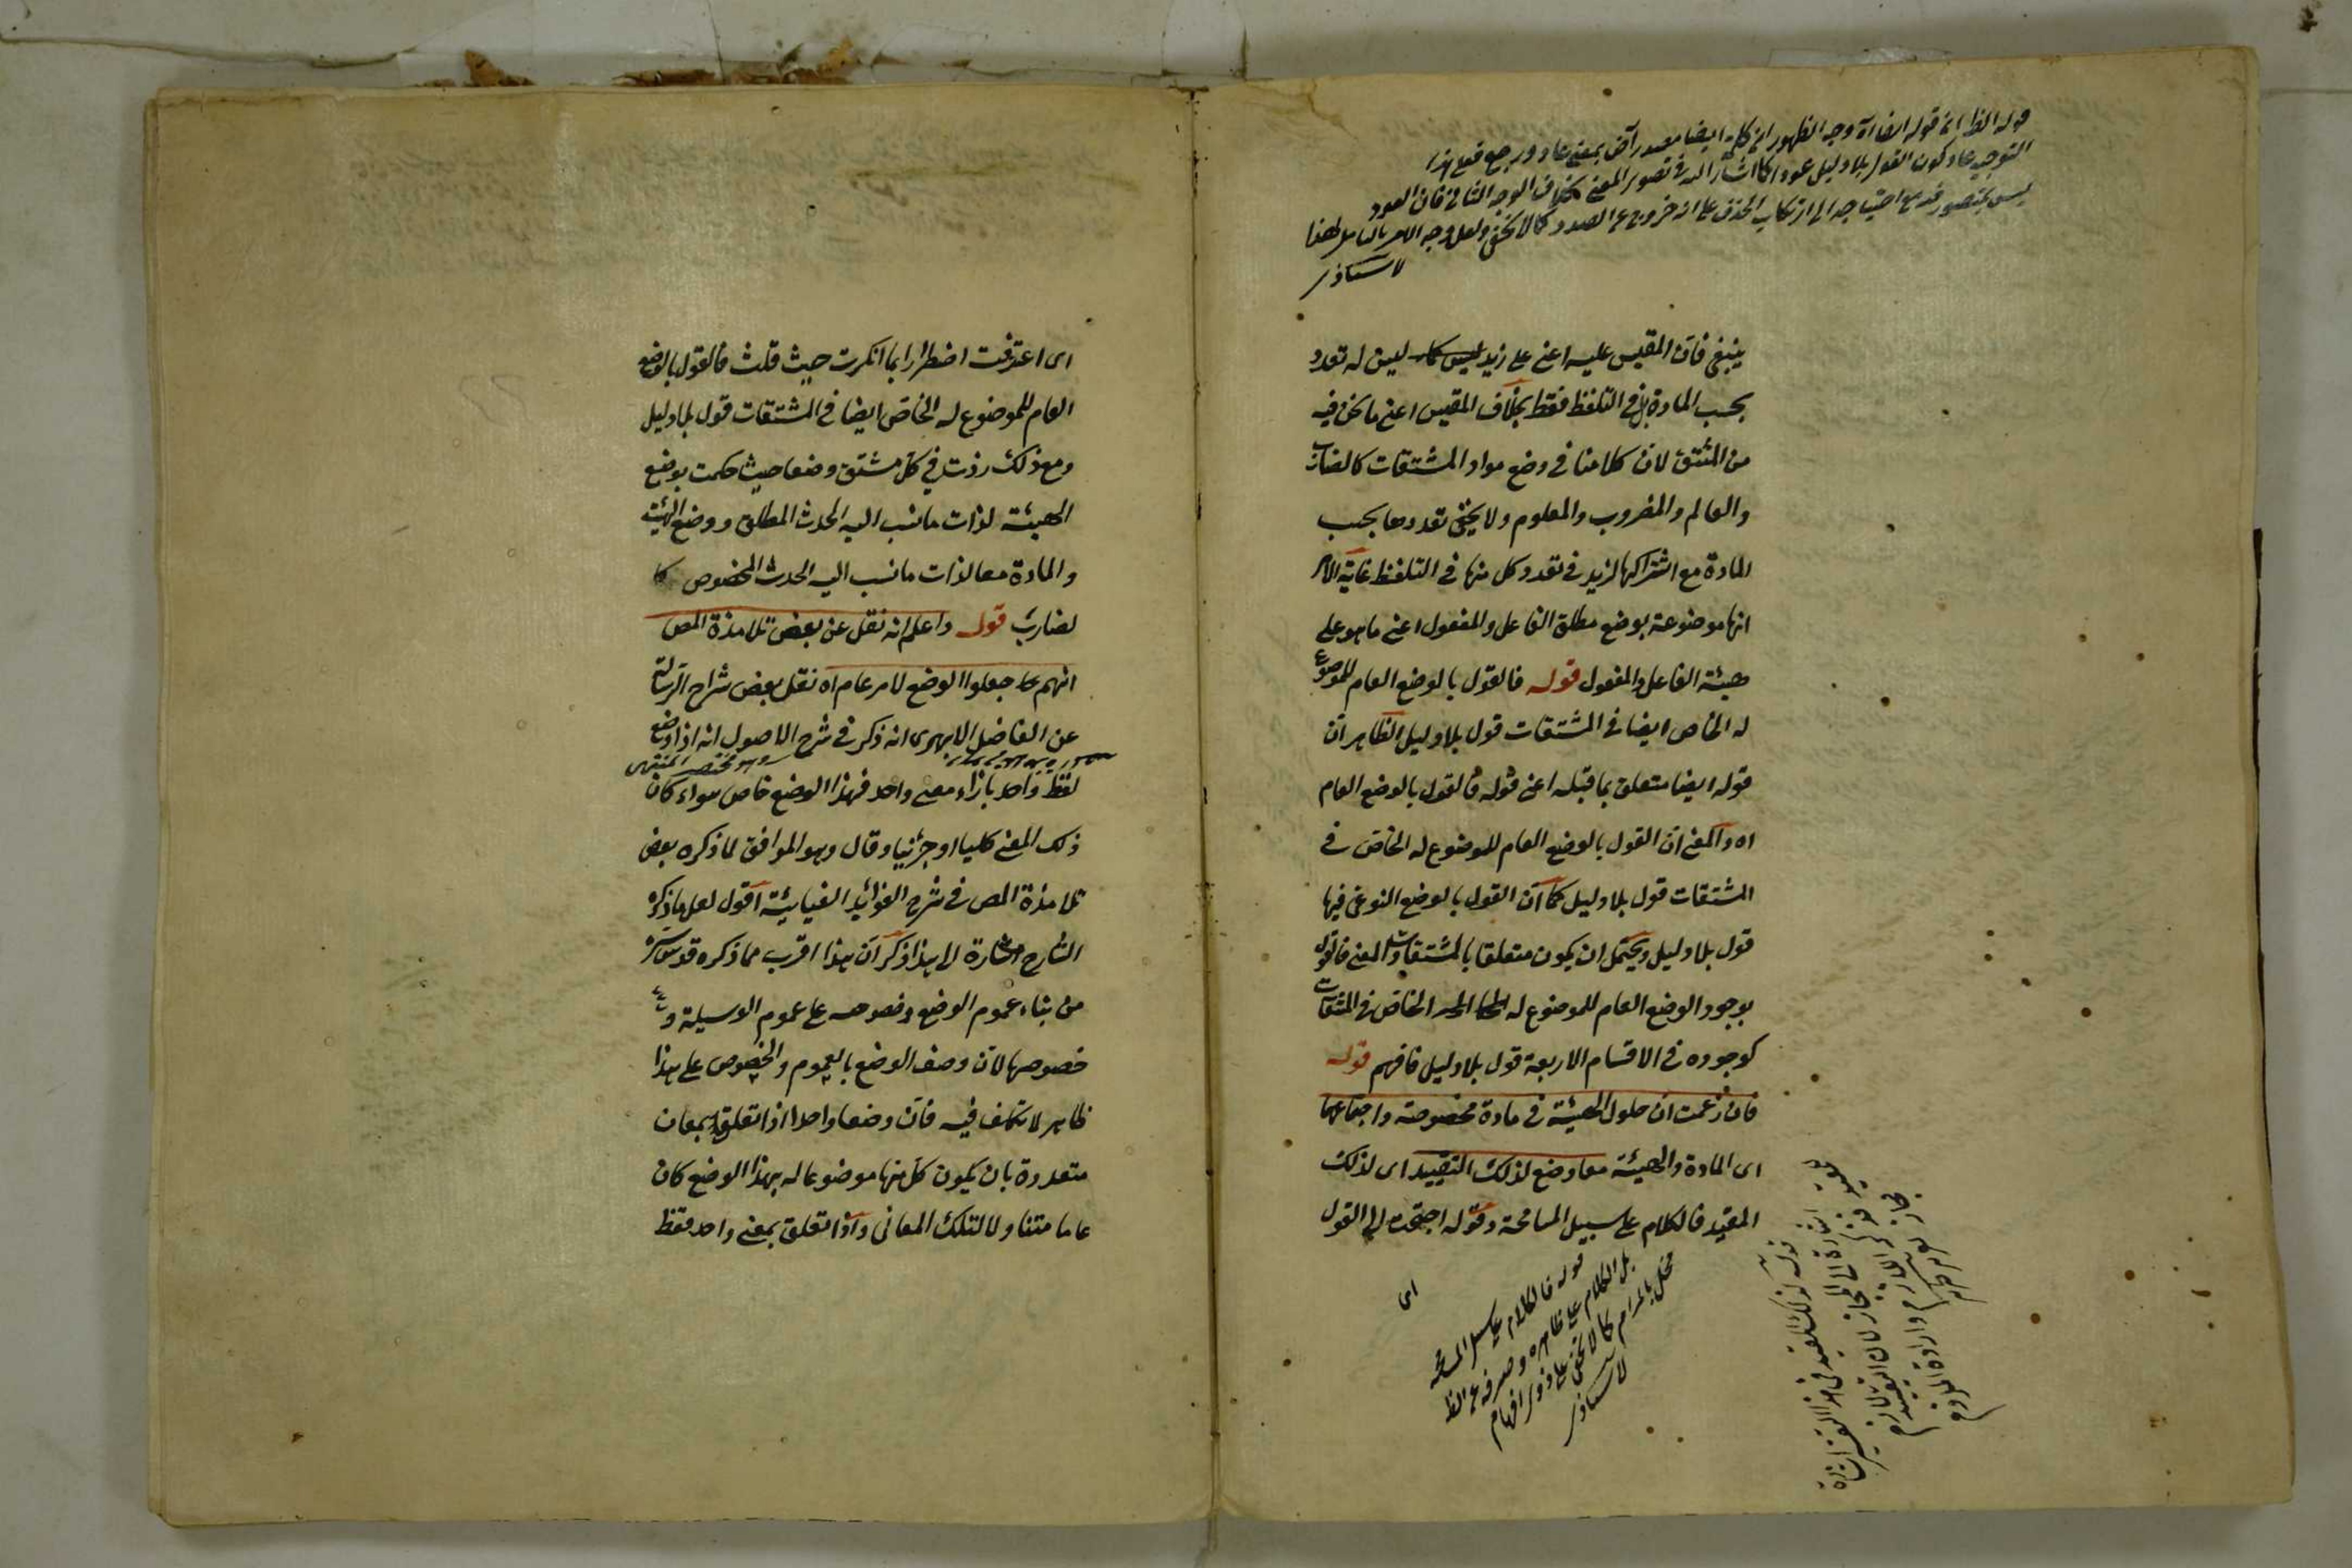 قوله الظ ان قوله ايضا اه وجه الظهور ان كلمة ايضا مصدر آض بمعنى عاد ورجع فعلى هذا
التوجيه عاد كون القول بلا دليل عودا كما اشار اليه في تصوير المعنى بخلاف الوجه الثاني فان العود
ليس بمتصور فيه مع احتياجه الى ارتكاب الحذف على انه خروج عن الصدد كما لا يخفى ولعل وجه الامر بالتأمل لهذا
لاستاذي
ينبغي فان المقيس عليه اعني على زيد ليس له تعدد
بحسب المادة بل في التلفظ فقط بخلاف المقيس اعني ما نحن فيه
من المشتق لان كلامنا في وضع مواد المشتقات كالضارب
والعالم والمضروب والمعلوم ولا يخفى تعددها بحسب
المادة مع اشتراكها لزيد في تعدد كل منها في التلفظ غاية الامر
انها موضوعة بوضع مطلق الفاعل والمفعول اعني ما هو على
هيئة الفاعل والمفعول قوله فالقول بالوضع العام للموضوع
له الخاص ايضا في المشتقات قول بلا دليل الظاهر ان
قوله ايضا متعلق بما قبله اعني قوله فالقول بالوضع العام
اه والمعنى ان القول بالوضع العام للموضوع له الخاص في
المشتقات قول بلا دليل كما ان القول بالوضع النوعي فيها
قول بلا دليل ويحتمل ان يكون متعلقا بالمشتقات والمعنى فالقول
بوجود الوضع العام للموضوع له الخاص في المشتقات
كوجوده في الاقسام الاربعة قول بلا دليل فافهم قوله
فان زعمت ان حلول الهيئة في مادة مخصوصة واجتماعهما
اى المادة والهيئة معا وضع لذلك التقييد اى لذلك
المقيد فالكلام على سبيل المسامحة وقوله احتجت الى القول
اى
قوله فالكلام على سبيل المسامحة
بل الكلام على ظاهره وصرفه عن الظ
مخل بالمرام كما لا يخفى على ذوي افهام
لاستاذي
اى اعترفت اضطرارا بما انكرت حيث قلت فالقول بالوضع
العام للموضوع له الخاص ايضا في المشتقات قول بلا دليل
ومع ذلك زدت في كل مشتق وضعا حيث حكمت بوضع
الهيئة لذات ما نسب اليه الحدث المطلق ووضع الهيئة
والمادة معا لذات ما نسب اليه الحدث المخصوص كا
لضارب قوله واعلم انه نقل عن بعض تلامذة المص
انهم جعلوا الوضع لامر عام اه نقل بعض شراح الرسالة
عن الفاضل الابهرى انه ذكر في شرح الاصول انه اذا وضع
وهو مختصر المنتهى
لفظ واحد بازاء معنى واحد فهذا الوضع خاص سواء كان
ذلك المعنى كليا او جزئيا وقال وهو الموافق لما ذكره بعض
تلامذة المص في شرح الفوائد الغياثية اقول لعل ما ذكره
الشارح اشارة الى هذا ذكر ان هذا اقرب مما ذكره قدس سره
من بناء عموم الوضع وخصوصه على عموم الوسيلة و
خصوصها لان وصف الوضع بالعموم والخصوص على هذا
ظاهر لا تكلف فيه فان وضعا واحدا اذا تعلق بمعان
متعددة بان يكون كل منها موضوعا له بهذا الوضع كان
عاما متناولا لتلك المعاني واذا تعلق بمعنى واحد فقط